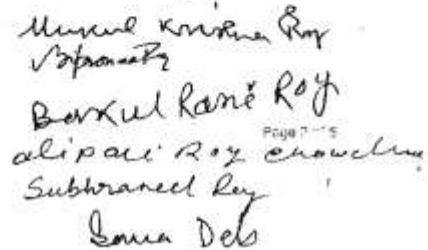 Krishna Roy
Bakul Rani Roy
Page
alipali Roy Chowdhu
Subhraneel Roy
Soma Deb